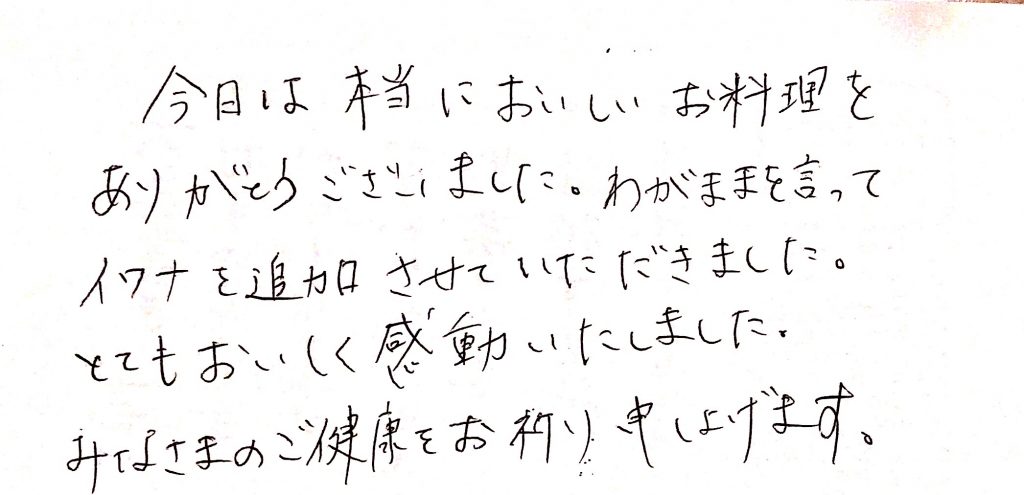 今日は本当においしいお料理を
ありがとうございました。わがままを言って
イワナを追加させていただきました。
とてもおいしく感動いたしました。
みなさまのご健康をお祈り申し上げます。